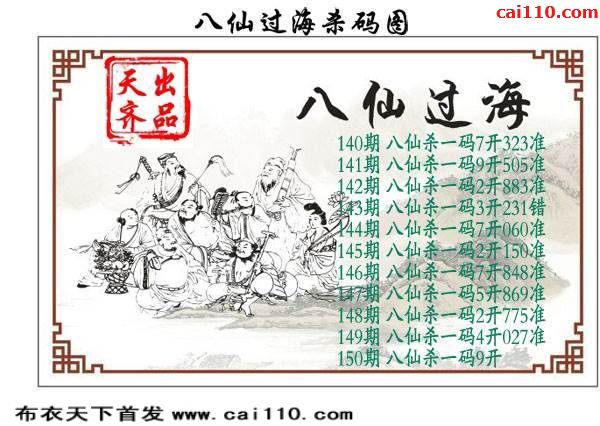 八仙过海杀码图
cai110.com
天齐出品
八仙过海
140期 八仙杀一码7开323准
141期 八仙杀一码9开505准
142期 八仙杀一码2开883准
143期 八仙杀一码3开231错
144期 八仙杀一码7开060准
145期 八仙杀一码2开150准
146期 八仙杀一码7开848准
147期 八仙杀一码5开869准
148期 八仙杀一码2开775准
149期 八仙杀一码4开027准
150期 八仙杀一码9开
布衣天下首发 www.cai110.com